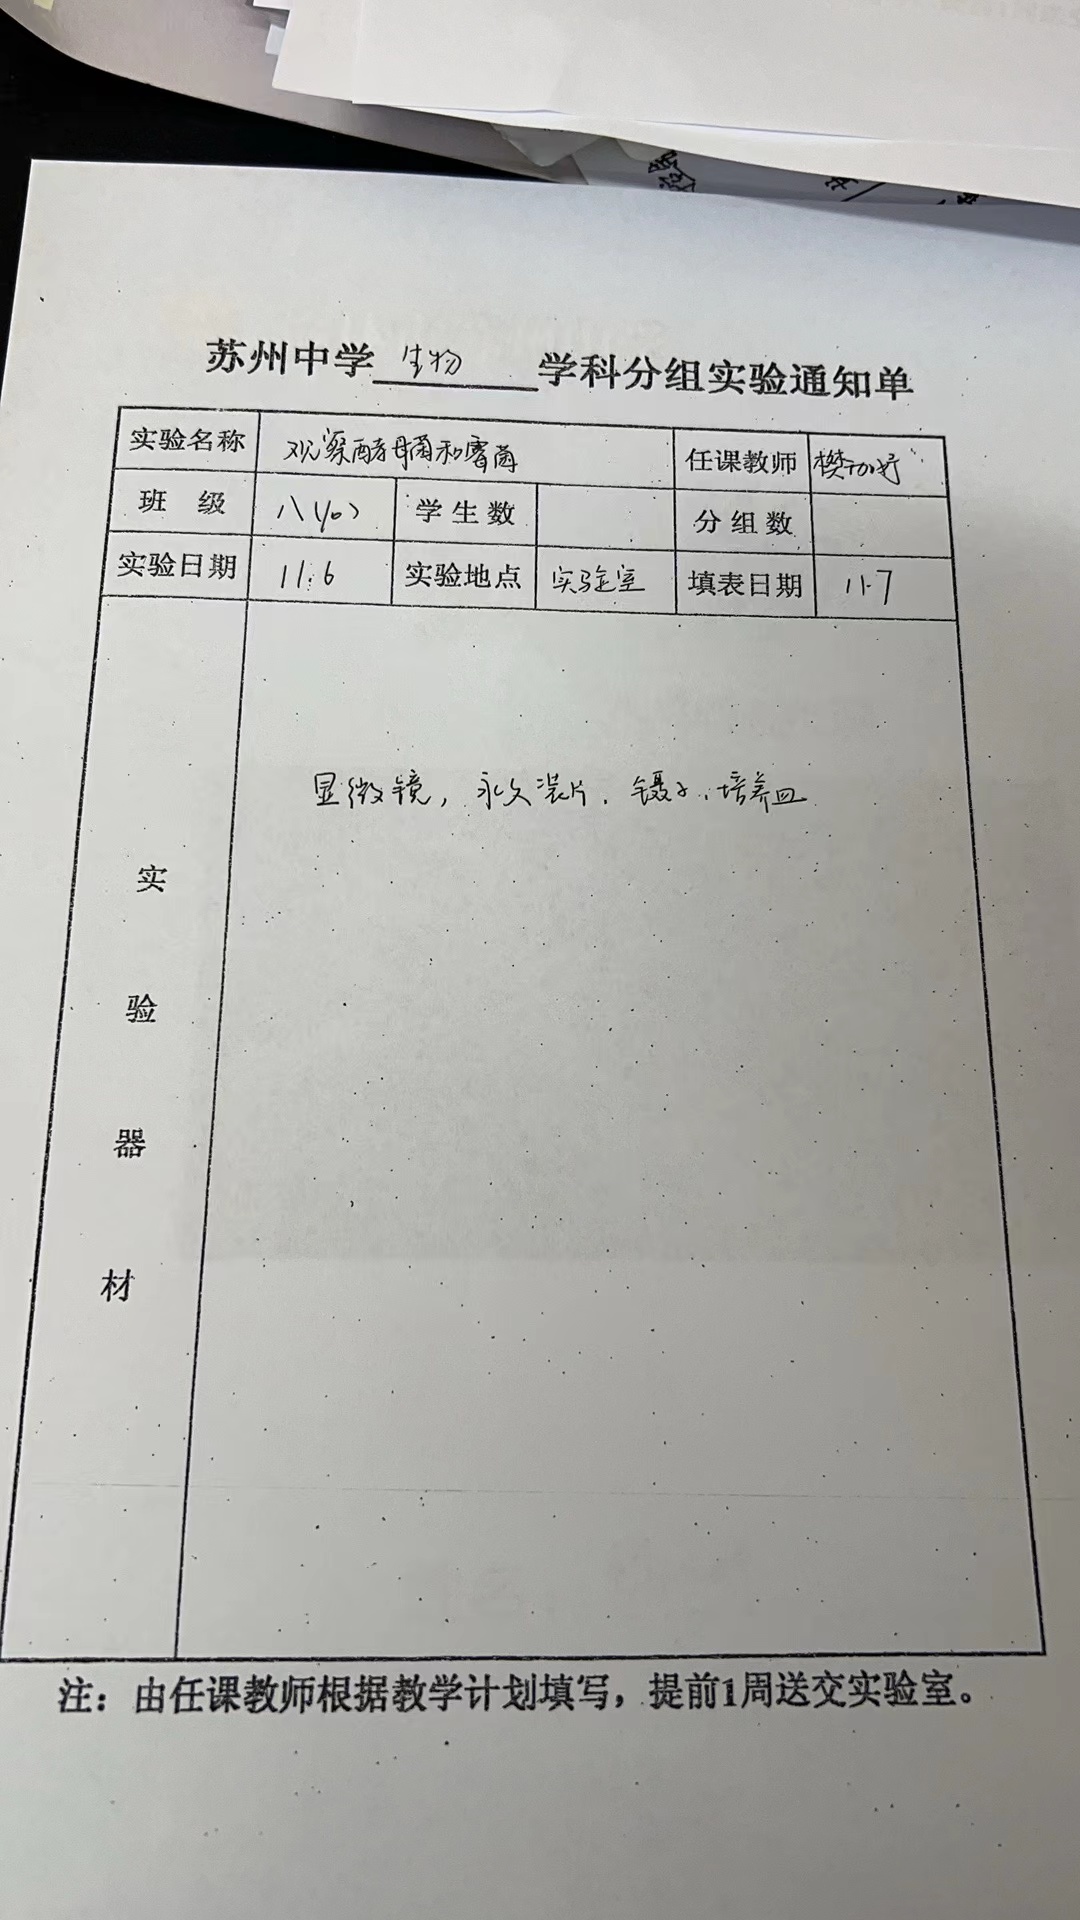 苏州中学 生物 学科分组实验通知单
实验名称 观察酵母菌和霉菌 任课教师
班 级 八(10) 学生数 分组数
实验日期 11.6 实验地点 实验室 填表日期 11.7
显微镜，永久装片、镊子、培养皿
实
验
器
材
注：由任课教师根据教学计划填写，提前1周送交实验室。